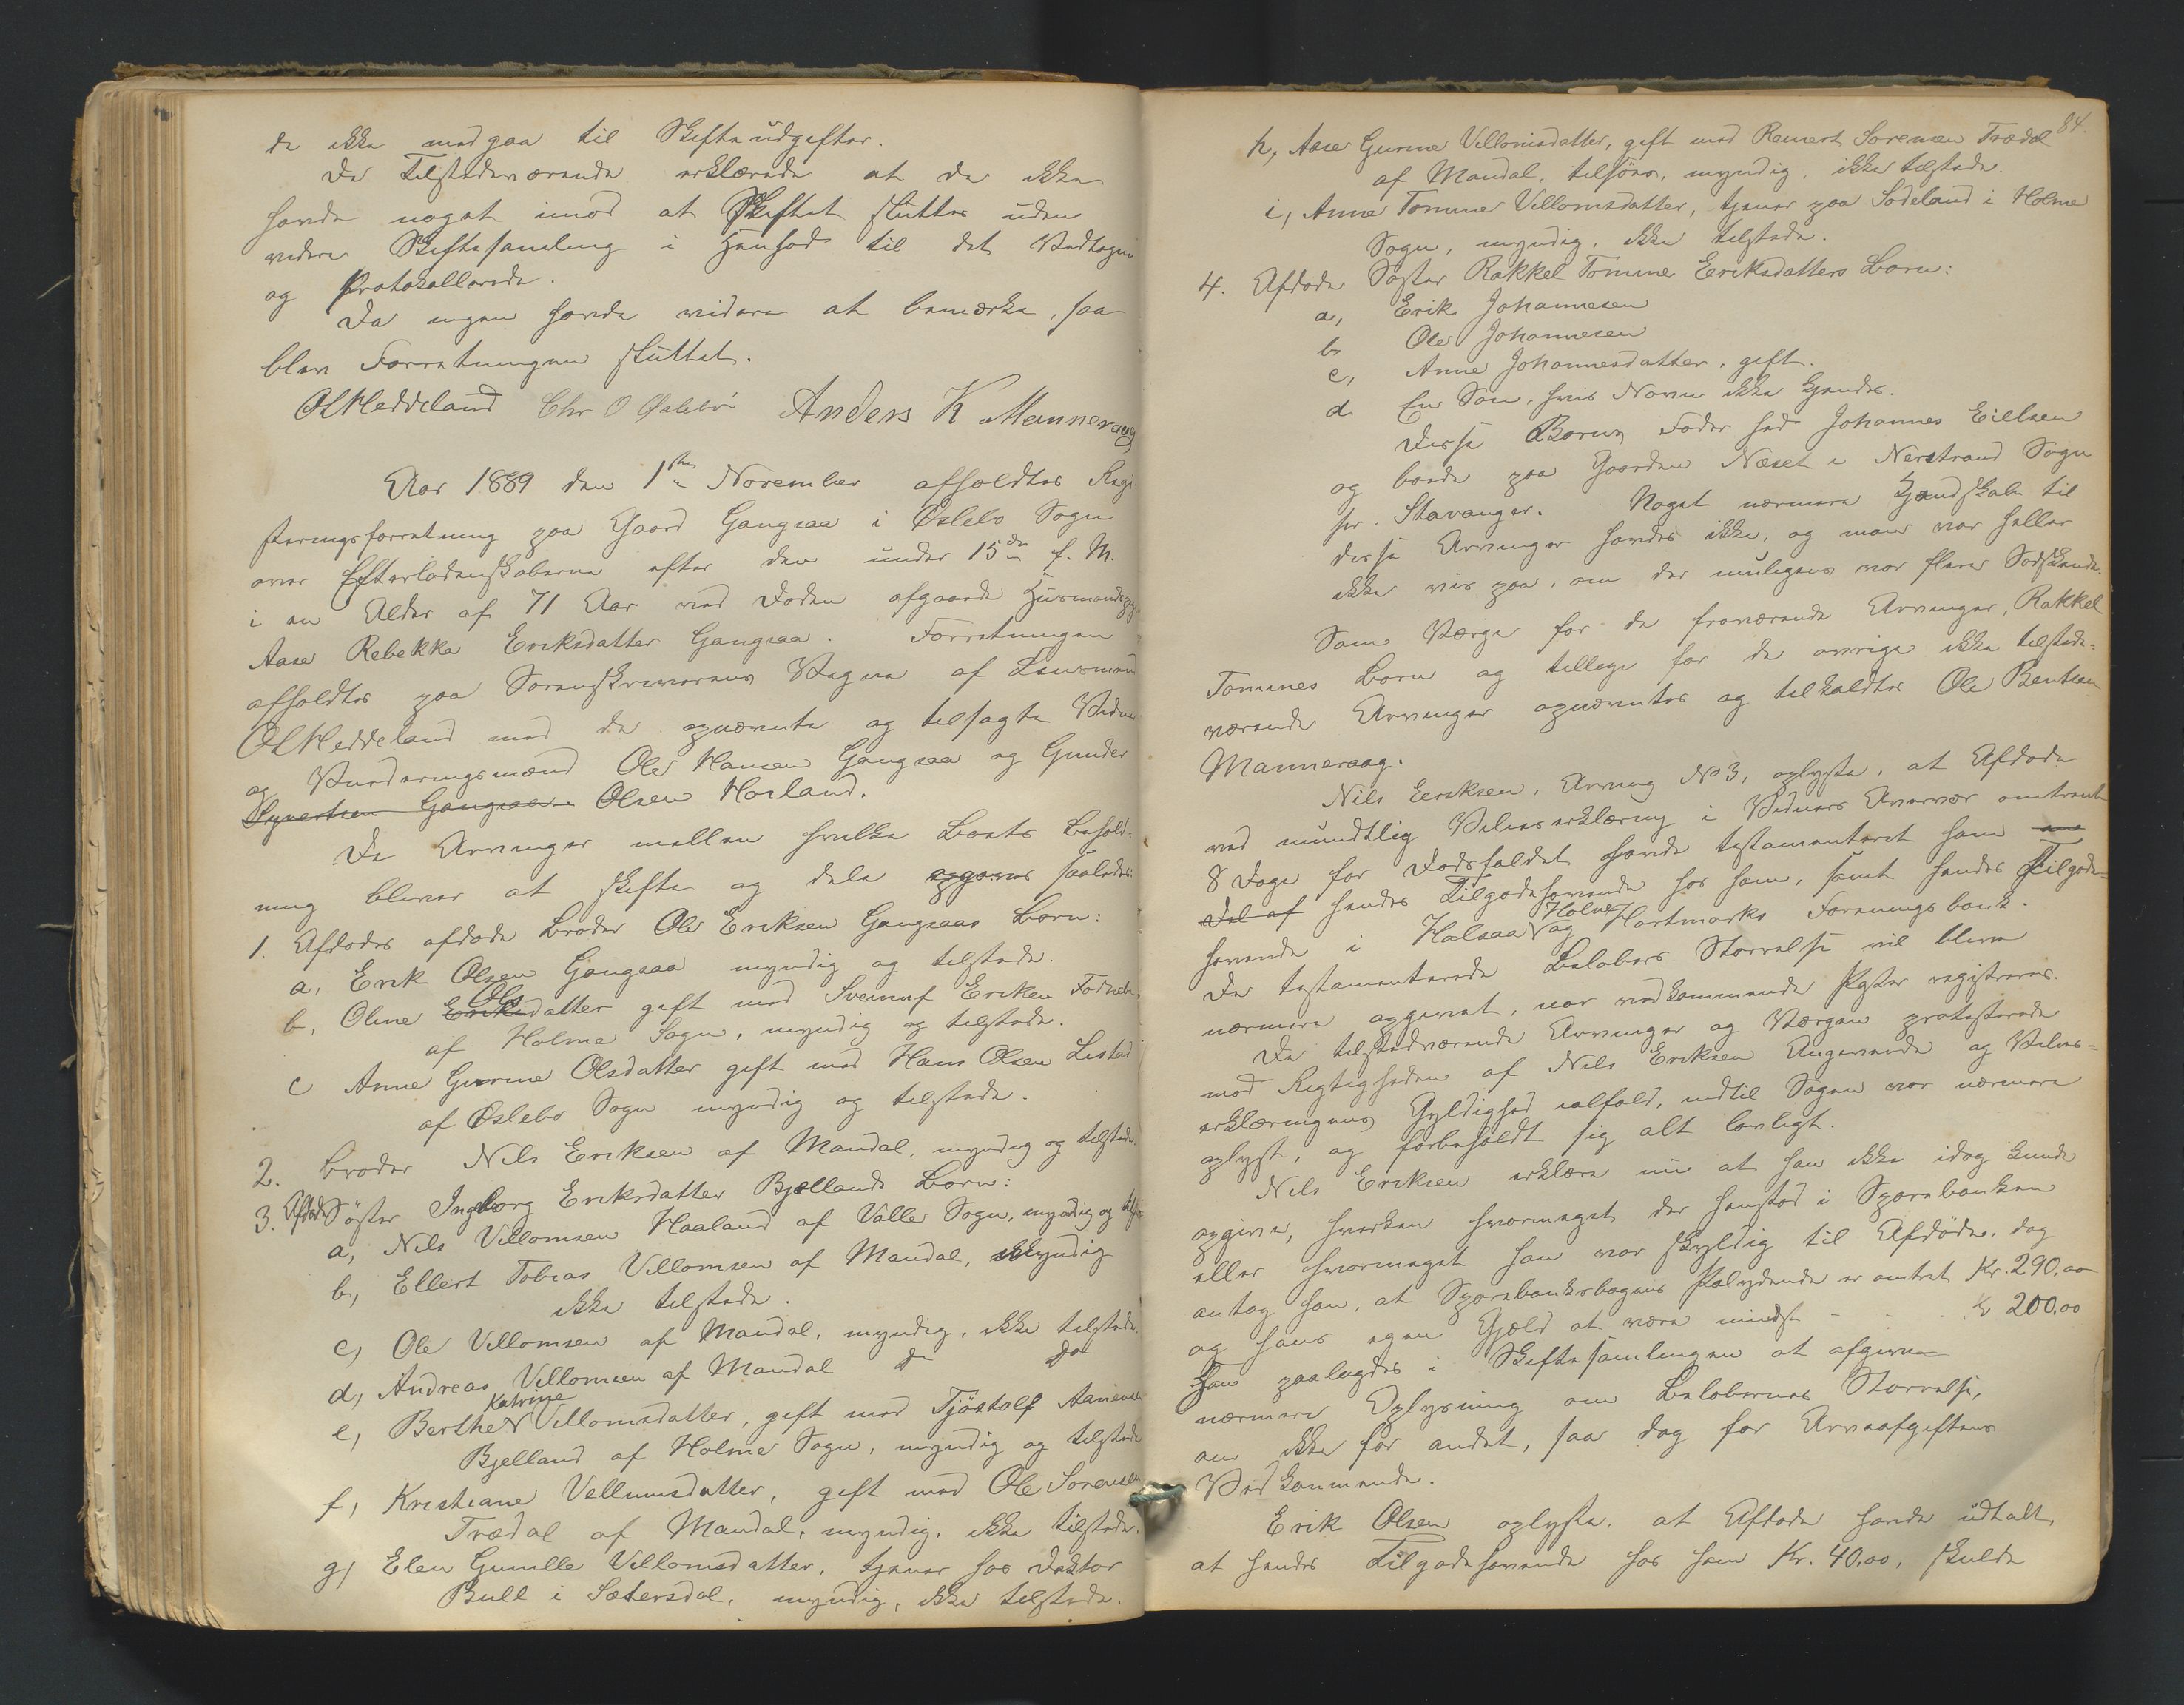 de ikke medgaa til Skifteudgifter.
De Tilstedeværende erklærede at de ikke
havde noget imod at Skiftet sluttes uden
videre Skiftesamling i Henhold til det Vedtagne
og Protokollerede.
Da ingen havde videre at bemærke, saa
blev Forretningen sluttet.
OAHeddeland Chr O Øslebö Anders K Manneraag
Aar 1889 den 1ste November afholdtes Regi-
streringsforretning paa Gaard Gangsaa i Øslebo Sogn
over Efterladenskaberne efter den under 15de f. M.
i en Alder af 71 Aar ved Døden afgaaede Husmandspige
Aase Rebekka Eriksdatter Gangsaa. Forretningen
afholdtes paa Sorenskriverens Vegne af Lensmand
OAHeddeland med de opnævnte og tilsagte Vidner
og Vurderingsmænd Ole Hansen Gangsaa og Gunder
Syvertsen Gangsaa Olsen Horland.
De Arvinger mellem hvilke Boets Behold-
ning bliver at skifte og dele opgaves saaledes:
1. Afdødes afdøde Broder Ole Eriksen Gangsaas Børn:
a, Erik Olsen Gangsaa myndig og tilstede.
b, Oline Eriksdatter Ols gift med Sveinuf Eriksen
af Holme Sogn, myndig og tilstede.
c Anne Gurine Olsdatter gift med Hans Olsen Lestad
af Øslebo Sogn myndig og tilstede.
2. Broder Nils Eriksen af Mandal, myndig og tilstede.
3. Afdøde Søster Ingborg Eriksdatter Bjellands Børn:
a, Nils Villomsen Haaland af Valle Sogn, myndig og
b, Ellert Tobias Villomsen af Mandal, myndig
ikke tilstede.
c, Ole Villomsen af Mandal, myndig, ikke tilstede.
d, Andreas Villomsen af Mandal do do
e, Berthe Katrine Villomsdatter, gift med Tjöstolf Aanensen
Bjelland af Holme Sogn, myndig og tilstede
f, Kristiane Villumsdatter, gift med Ole Sorensen
Trædal af Mandal, myndig, ikke tilstede.
g, Elen Gunille Villomsdatter, tjener hos Doktor
Bull i Sætersdal, myndig, ikke tilstede.
84.
h, Aase Gurine Villomsdatter, gift med Reinert Sorensen Trædal
af Mandal, tilsjöes, myndig, ikke tilstede.
i, Anne Tomine Villomsdatter, tjener paa Sodeland i Holme
Sogn, myndig, ikke tilstede.
4. Afdøde Søster Rakkel Tomine Eriksdatters Børn:
a, Erik Johannesen
b Ole Johannesen
c, Anne Johannesdatter, gift.
d En Søn, hvis Navn ikke kjendes.
Disse Børns Fader hed Johannes Eillsen
og boede paa Gaarden Næset i Nerstrand Sogn
pr. Stavanger. Noget nærmere Kjendskab til
disse Arvinger havdes ikke, og man var heller
ikke vis paa, om der muligens var flere Sødskende.
Som Værge for de fraværende Arvinger, Rakkel
Tomines Børn og tillige for de øvrige ikke tilstede-
værende Arvinger opnævntes og tilkaldtes Ole Bentsen
Manneraag.
Nils Eriksen, Arving No 3, oplyste, at Afdøde
ved mundtlig Viljeserklæring i Vidners Overvær omtrent
8 Dage før Dødsfaldet havde testamenteret ham en
Del af hendes Tilgodehavende hos ham, samt hendes Tilgode-
havende i Halsaa Holme og Hartmarks Forenings bank.
De testamenterede Beløbers Størrelse vil blive
nærmere opgivet, naar vedkommende Poster registreres.
De tilstedeværende Arvinger og Værgen protesterede
mod Rigtigheden af Nils Eriksen Angivende og Viljes-
erklæringens Gyldighed ialfald, indtil Sagen var nærmere
oplyst, og forbeholdt sig alt lovligt.
Nils Eriksen erklære nu at han ikke idag kunde
opgive, hverken hvormeget der henstod i Sparebanken
eller hvormeget han var skyldig til Afdøde, dog
antog han, at Sparebanksbogens Paalydende er omtrent Kr. 290,00
og hans egen Gjæld at være mindst - - - " 200,00
Han paalagdes i Skiftesamlingen at afgive
nærmere Oplysning om Beløbernes Størrelse,
om ikke for andet, saa dog for Arveafgiftens
Vedkommende.
Erik Olsen oplyste, at Afdøde havde udtalt,
at hendes Tilgodehavende hos ham Kr. 40,00, skulde